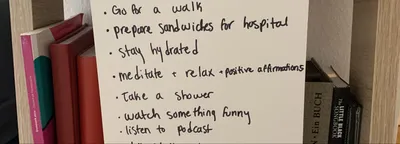 • Go for a walk
• prepare sandwiches for hospital
• stay hydrated
• meditate + relax + positive affirmations
• Take a shower
• watch something funny
• listen to podcast
Ein BUCH
LITTLE BLACK
SONGBOOK